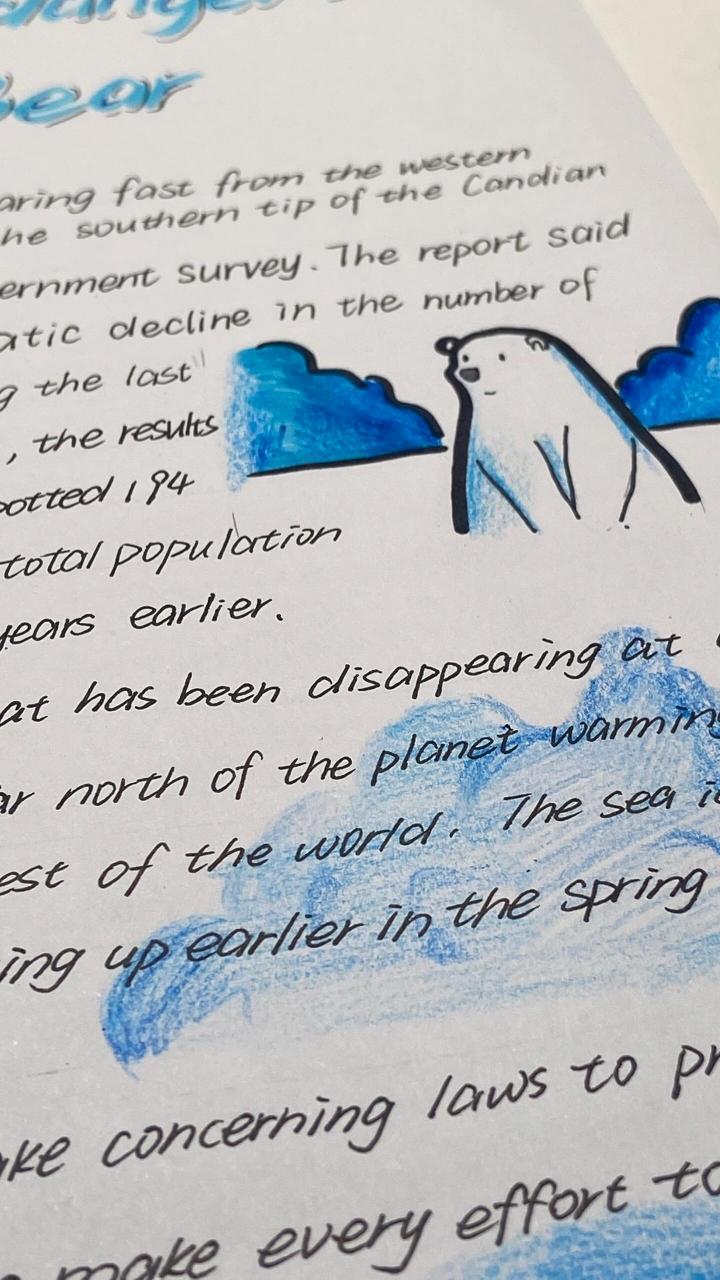 Bear
fast from the western
the southern tip of the Candian
survey. The report said
decline in the number of
the last
, the results
194
total population
years earlier.
has been disappearing at
north of the planet warming
of the world. The sea
up earlier in the spring
concerning laws to
make every effort to